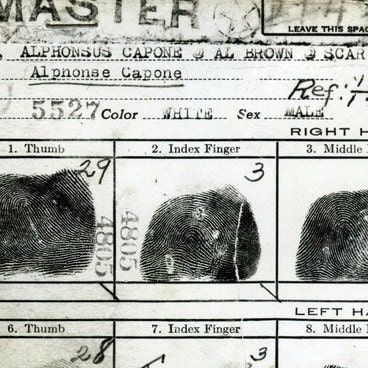 MASTER
LEAVE THIS SPAC
ALPHONSUS CAPONE @ AL BROWN @ SCAR
Alphonse Capone
Ref:
5527 Color WHITE Sex MALE
RIGHT H
1. Thumb 2. Index Finger 3. Middle
29 3
4805 4805
LEFT HA
6. Thumb 7. Index Finger 8. Middle
28 3